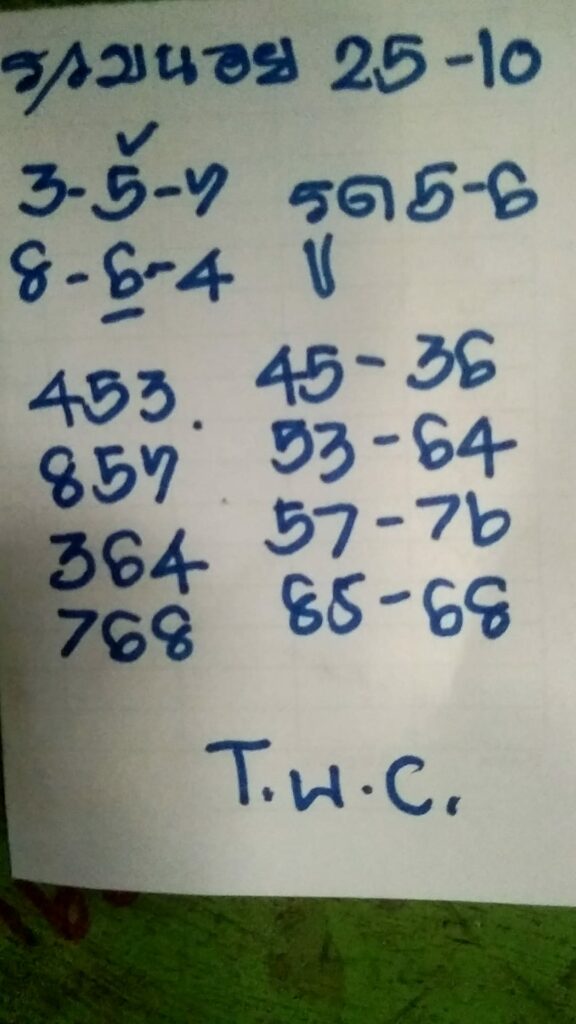 25-10
3-5-7 รด 5-6
8-6-4
453 45-36
857 53-64
364 57-76
768 85-68
T.W.C.